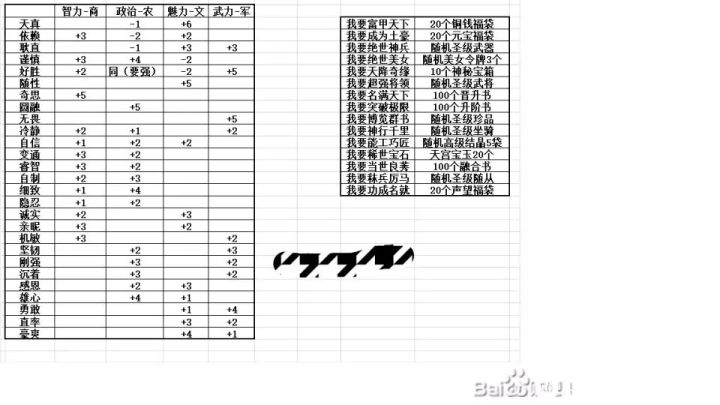 智力-商 政治-农 魅力-文 武力-军
天真 -1 +6
依赖 +3 -2 +2
耿直 -1 +3 +3
谨慎 +3 +4 -2
好胜 +2 同（要强） -2 +5
随性 +5
奇思 +5
圆融 +5
无畏 +5
冷静 +2 +1 +2
自信 +1 +2 +2
变通 +3 +2
睿智 +3 +2
自制 +2 +3
细致 +1 +4
隐忍 +1 +2
诚实 +2 +3
亲昵 +3 +2
机敏 +3 +2
坚韧 +2 +3
刚强 +3 +2
沉着 +3 +2
感恩 +2 +3
雄心 +4 +1
勇敢 +1 +4
直率 +3 +2
豪爽 +4 +1
我要富甲天下 20个铜钱福袋
我要成为土豪 20个元宝福袋
我要绝世神兵 随机圣级武器
我要绝世美女 随机美女令牌3个
我要天降奇缘 10个神秘宝箱
我要超强将领 随机圣级武将
我要名满天下 100个晋升书
我要突破极限 100个升阶书
我要博览群书 随机圣级珍品
我要神行千里 随机圣级坐骑
我要能工巧匠 随机高级结晶5袋
我要稀世宝石 天宫宝玉20个
我要当世良荠 100个融合书
我要秣兵厉马 随机圣级随从
我要功成名就 20个声望福袋